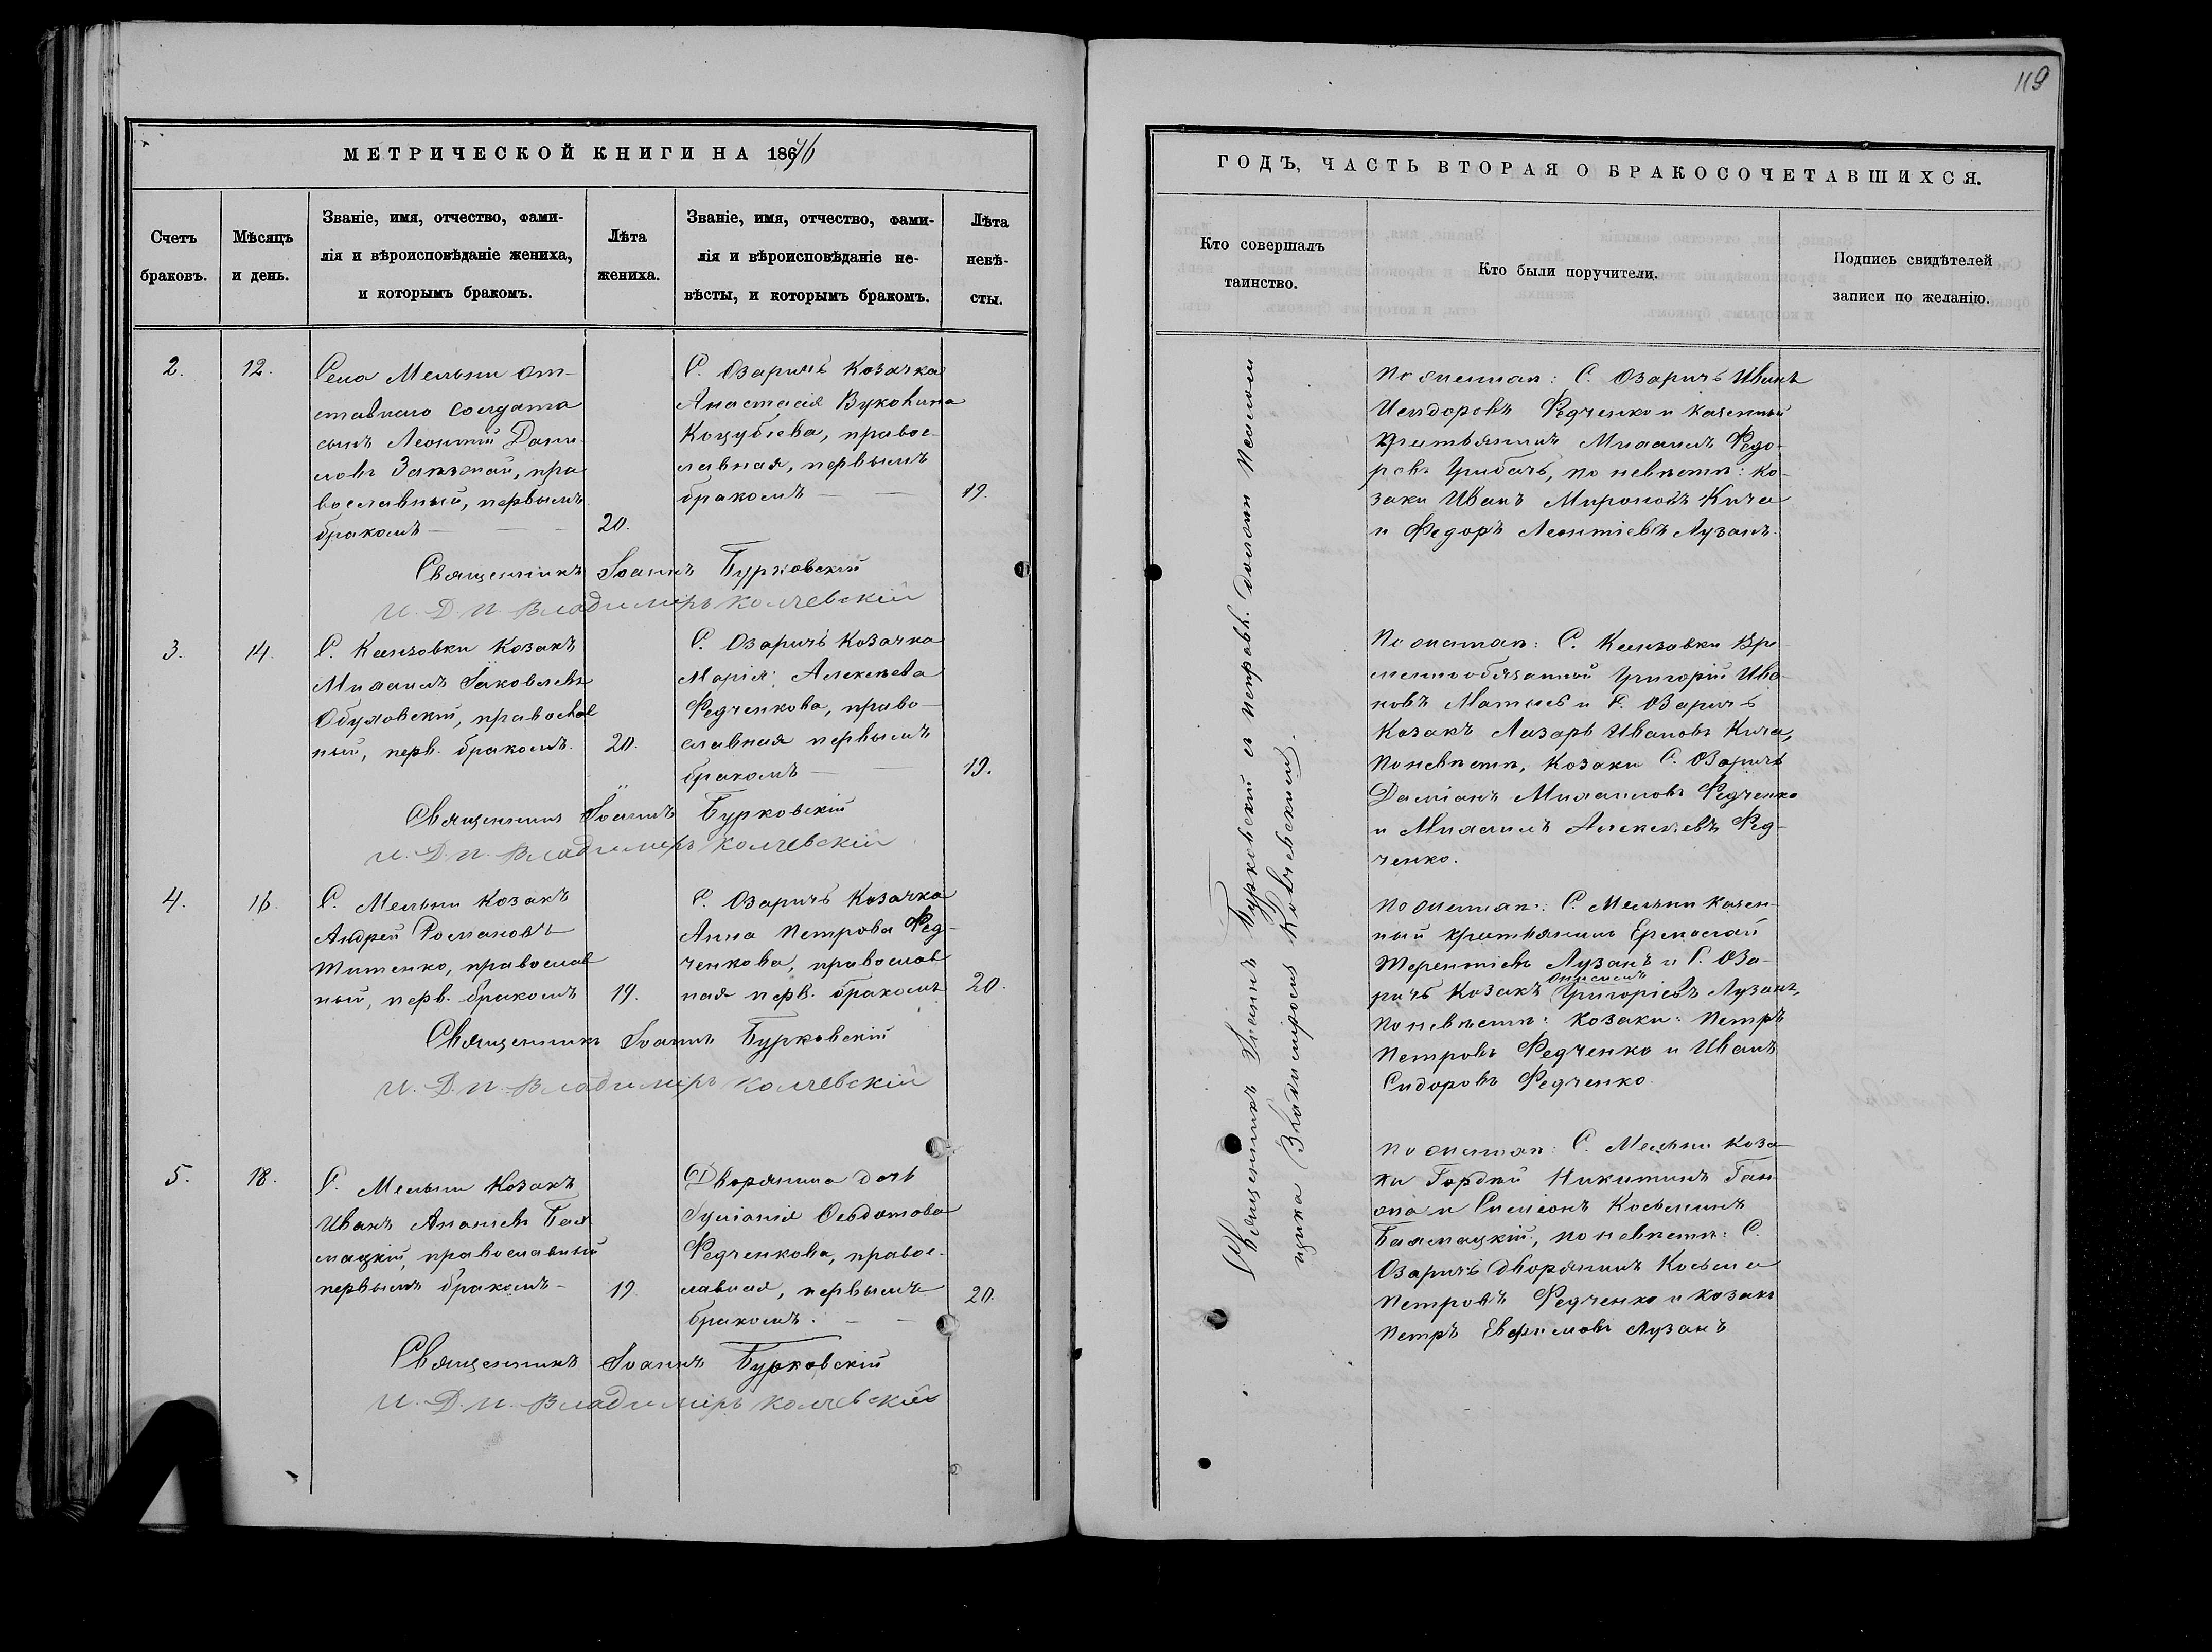 119
МЕТРИЧЕСКОЙ КНИГИ НА 1876
ГОДЪ, ЧАСТЬ ВТОРАЯ О БРАКОСОЧЕТАВШИХСЯ.
Счетъ
браковъ.
Мѣсяцъ
и день.
Званіе, имя, отчество, фами-
лія и вѣроисповѣданіе жениха,
и которымъ бракомъ.
Лѣта
жениха.
Званіе, имя, отчество, фами-
лія и вѣроисповѣданіе не-
вѣсты, и которымъ бракомъ.
Лѣта
невѣ-
сты.
2.
12.
Села Мельни от-
ставнаго солдата
сынъ Леонтій Дани
ловъ пра
вославный, первымъ
бракомъ
20.
С. Озаричъ Козачка
Анастасія
Коцубіева, правос-
лавная, первымъ
бракомъ
19.
Священникъ Іоаннъ Бурковскій
И. Д. П. Владиміръ Колчевскій
3.
14.
С. Козакъ
Михаилъ Іаковлевъ
православ
ный, перв. бракомъ.
20.
С. Озаричъ Козачка
Марія Алексѣева
Федченкова, право-
славная первымъ
бракомъ
19.
Священникъ Іоаннъ Бурковскій
И. Д. П. Владиміръ Колчевскій
4.
16.
С. Мельни Козакъ
Андрей Романовъ
Титенко, православ
ный, перв. бракомъ
19.
С. Озаричъ Козачка
Анна Петрова Фед-
ченкова, православ
ная перв. бракомъ
20.
Священникъ Іоаннъ Бурковскій
И. Д. П. Владиміръ Колчевскій
5.
18.
С. Мельни Козакъ
Иванъ Ананіевъ Бах
мацкій, православный
первымъ бракомъ
19.
Дворянина дочь
Іуліанія Февдотова
Федченкова, правос-
лавная, первымъ
бракомъ.
20.
Священникъ Іоаннъ Бурковскій
И. Д. П. Владиміръ Колчевскій
Священникъ Іоаннъ Бурковскій съ исправл. должн. псалом
щика Владиміромъ Колчевскимъ.
По женихѣ: С. Озаричъ Иванъ
Исидоровъ Федченко и казенный
крестьянинъ Михаилъ Федо-
ровъ Грибачъ, по невѣстѣ: ко-
заки Иванъ Мироновъ Кича
и Федоръ Леонтіевъ Лузанъ.
По женихѣ: С. Вре
меннообязанный Григорій Ива
новъ и С. Озаричъ
Козакъ Лазарь Ивановъ Кича,
По невѣстѣ, Козаки С. Озаричъ
Даміанъ Михаиловъ Федченко
и Михаилъ Алексѣевъ Фед-
ченко.
По женихѣ: С. Мельни казен-
ный крестьянинъ Ермолай
Терентіевъ Лузанъ и С. Оза-
ричъ Козакъ Григоріевъ Лузанъ,
По невѣстѣ: Козаки: Петръ
Петровъ Федченко и Иванъ
Сидоровъ Федченко.
По женихѣ: С. Мельни Коза
ки Гордѣй Никитинъ
и Симеонъ Косьминъ
Бахмацкій, по невѣстѣ: С.
Озаричъ Дворянинъ Косьма
Петровъ Федченко и козакъ
Петръ Евфимовъ Лузанъ